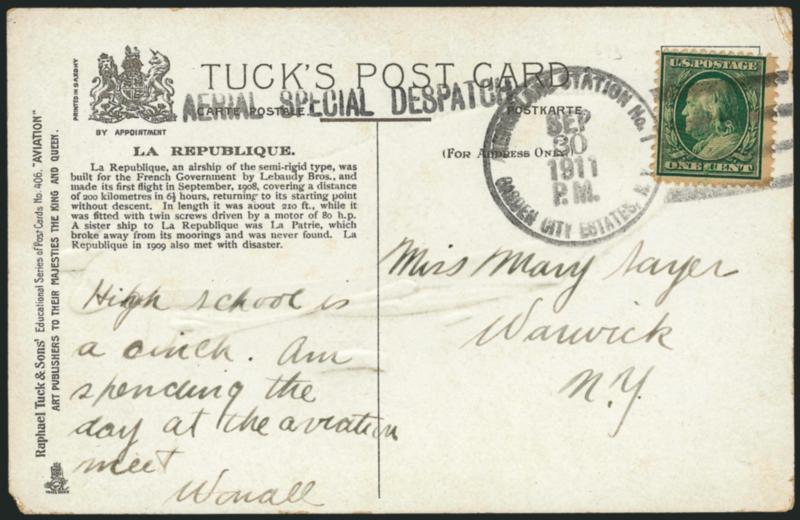 PRINTED IN SAXONY
TUCK'S POST CARD
AERIAL SPECIAL DESPATCH
CARTE POSTALE.
POSTKARTE
BY APPOINTMENT
(FOR ADDRESS ONLY)
LA REPUBLIQUE.
La Republique, an airship of the semi-rigid type, was
built for the French Government by Lebaudy Bros., and
made its first flight in September, 1908, covering a distance
of 200 kilometres in 6½ hours, returning to its starting point
without descent. In length it was about 210 ft., while it
was fitted with twin screws driven by a motor of 80 h.p.
A sister ship to La Republique was La Patrie, which
broke away from its moorings and was never found. La
Republique in 1909 also met with disaster.
Raphael Tuck & Sons' Educational Series of Post Cards No. 406, "AVIATION"
ART PUBLISHERS TO THEIR MAJESTIES THE KING AND QUEEN.
High school is
a cinch. Am
spending the
day at the aviation
meet
STATION No. 1
SEP
30
1911
P.M.
GARDEN CITY ESTATES, N.Y.
U.S. POSTAGE
ONE CENT
Miss Mary Sayer
Warwick
N.Y.